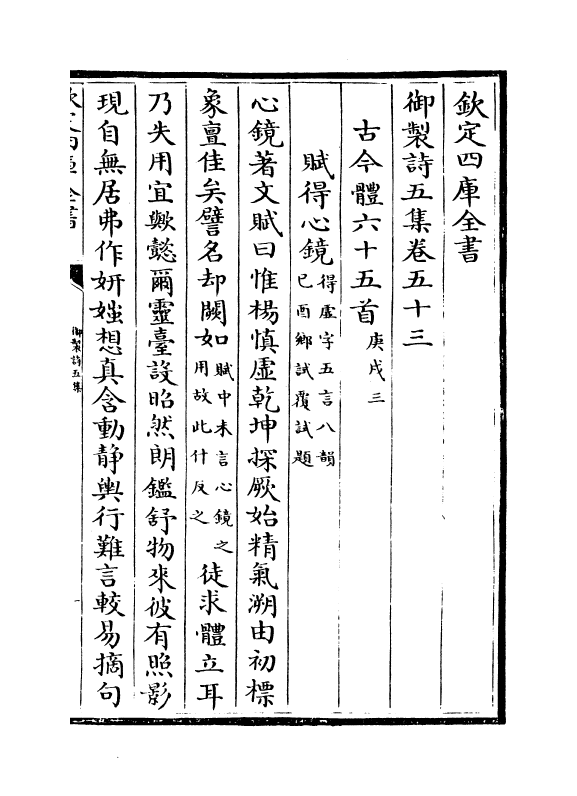 欽定四庫全書
御製詩五集卷五十三
古今體六十五首庚戌三
賦得心鏡得虚字五言八韻
己酉鄉試覆試題
心鏡著文賦曰惟楊慎虚乾坤探厥始精氣溯由初標
象亶佳矣譬名却闕如賦中未言心鏡之
用故此什反之徒求體立耳
乃失用宜歟懿爾靈臺設昭然朗鑑舒物來彼有照影
現自無居弗作妍媸想真含動静輿行難言較易摘句
欽定四庫全書
御製詩五集